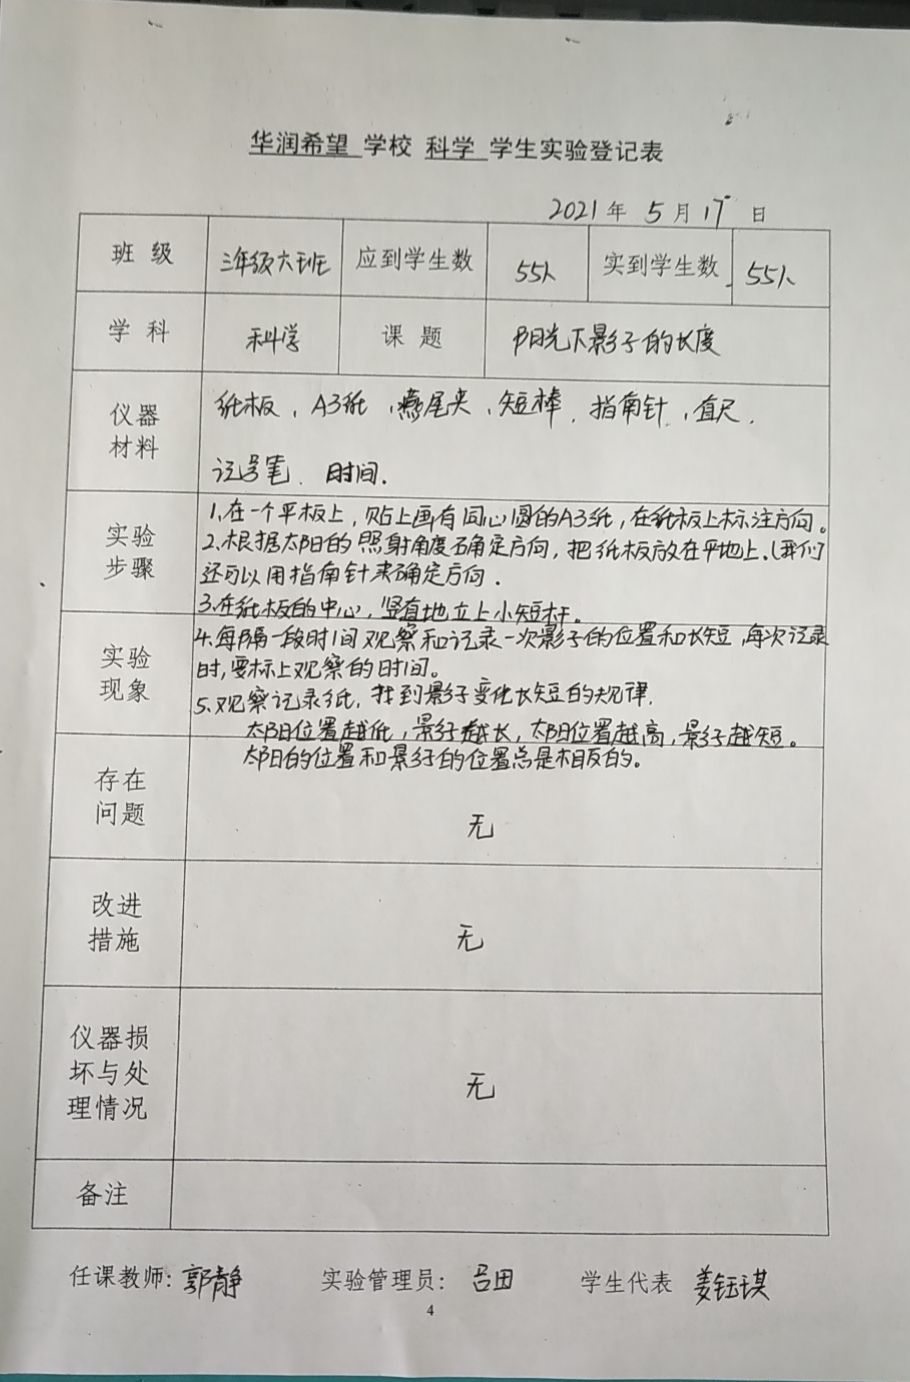 华润希望 学校 科学 学生实验登记表
2021 年 5 月 17 日
班 级 三年级六班 应到学生数 55人 实到学生数 55人
学 科 科学 课 题 阳光下影子的长度
仪器
材料
纸板、A3纸、燕尾夹、短棒、指南针、直尺、
记号笔、时间.
实验
步骤
1.在一个平板上，贴上画有同心圆的A3纸，在纸板上标注方向。
2.根据太阳的照射角度确定方向，把纸板放在平地上.(我们
还可以用指南针来确定方向.
3.在纸板的中心，竖直地立上小短杆。
实验
现象
4.每隔一段时间观察和记录一次影子的位置和长短,每次记录
时,要标上观察的时间。
5.观察记录纸，找到影子变化长短的规律.
太阳位置越低，影子越长，太阳位置越高，影子越短。
太阳的位置和影子的位置总是相反的。
存在
问题
无
改进
措施
无
仪器损
坏与处
理情况
无
备注
任课教师: 郭静 实验管理员: 吕田 学生代表 姜钰琪
4